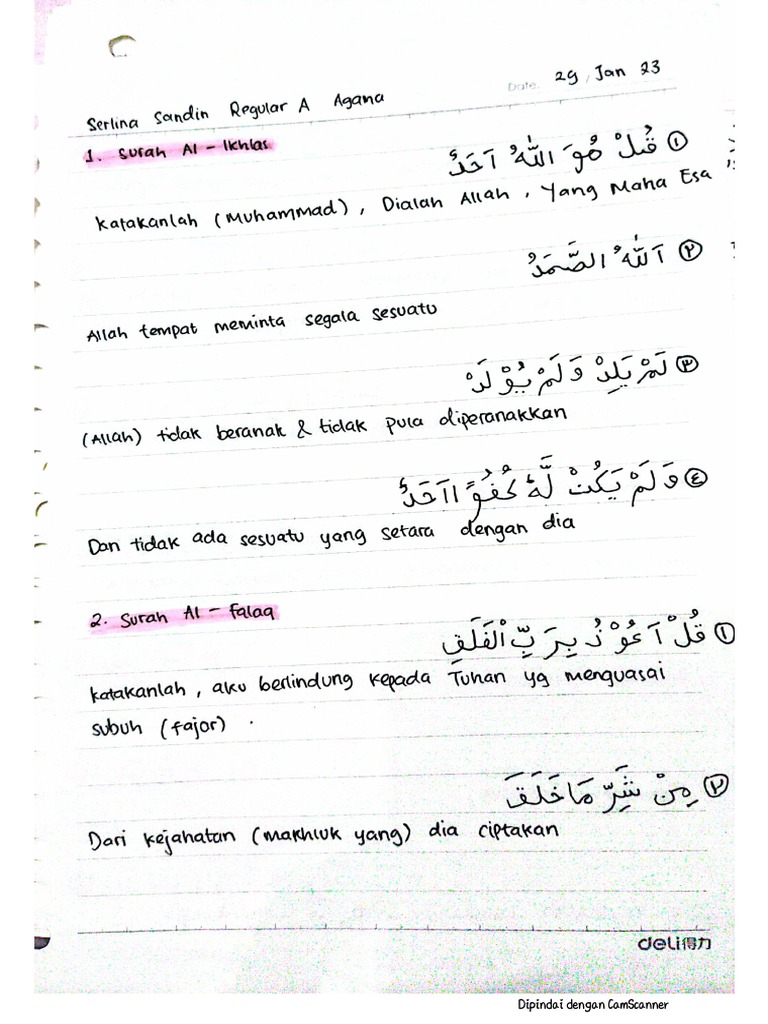 Serlina Sandin Regular A Agama
Date. 29, Jan 23
1. Surah Al - Ikhlas
① قُلْ هُوَ اللّٰهُ اَحَدٌ
Katakanlah (Muhammad), Dialah Allah, Yang Maha Esa
② اَللّٰهُ الصَّمَدُ
Allah tempat meminta segala sesuatu
③ لَمْ يَلِدْ وَلَمْ يُوْلَدْ
(Allah) tidak beranak & tidak pula diperanakkan
④ وَلَمْ يَكُنْ لَّهٗ كُفُوًا اَحَدٌ
Dan tidak ada sesuatu yang setara dengan dia
2. Surah Al - Falaq
① قُلْ اَعُوْذُ بِرَبِّ الْفَلَقِ
Katakanlah, aku berlindung kepada Tuhan yg menguasai
subuh (fajor).
② مِنْ شَرِّ مَا خَلَقَ
Dari kejahatan (makhluk yang) dia ciptakan
deli得力
Dipindai dengan CamScanner